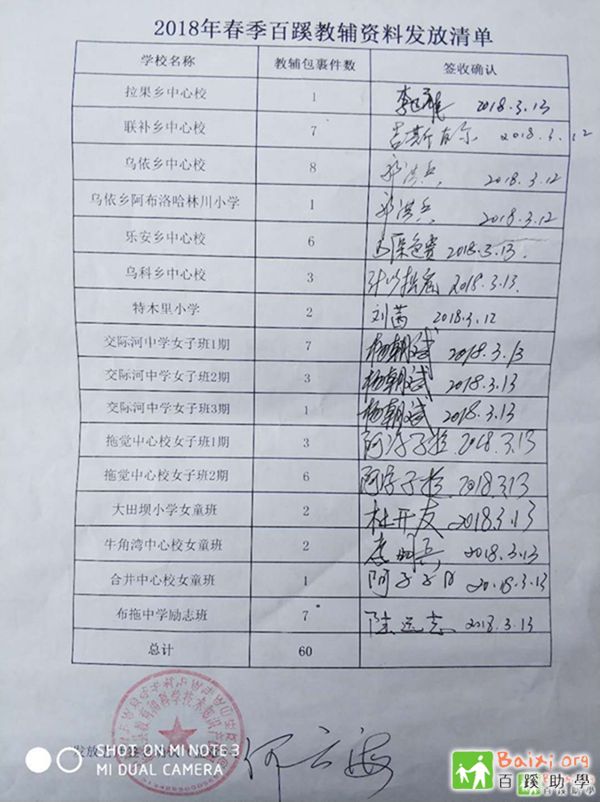 2018年春季百蹊教辅资料发放清单
学校名称 教辅包裹件数 签收确认
拉果乡中心校 1 2018.3.13
联补乡中心校 7 2018.3.12
乌依乡中心校 8 2018.3.12
乌依乡阿布洛哈林川小学 1 2018.3.12
乐安乡中心校 6 2018.3.13
乌科乡中心校 3 2018.3.13
特木里小学 2 刘茜 2018.3.12
交际河中学女子班1期 7 杨朝斌 2018.3.13
交际河中学女子班2期 3 杨朝斌 2018.3.13
交际河中学女子班3期 1 杨朝斌 2018.3.13
拖觉中心校女子班1期 3 2018.3.13
拖觉中心校女子班2期 6 2018.3.13
大田坝小学女童班 2 杜开友 2018.3.13
牛角湾中心校女童班 2 2018.3.13
合井中心校女童班 1 2018.3.13
布拖中学励志班 7 陈远志 2018.3.13
总计 60
何云海
SHOT ON MI NOTE 3
MI DUAL CAMERA
Baixi.org
百蹊助學